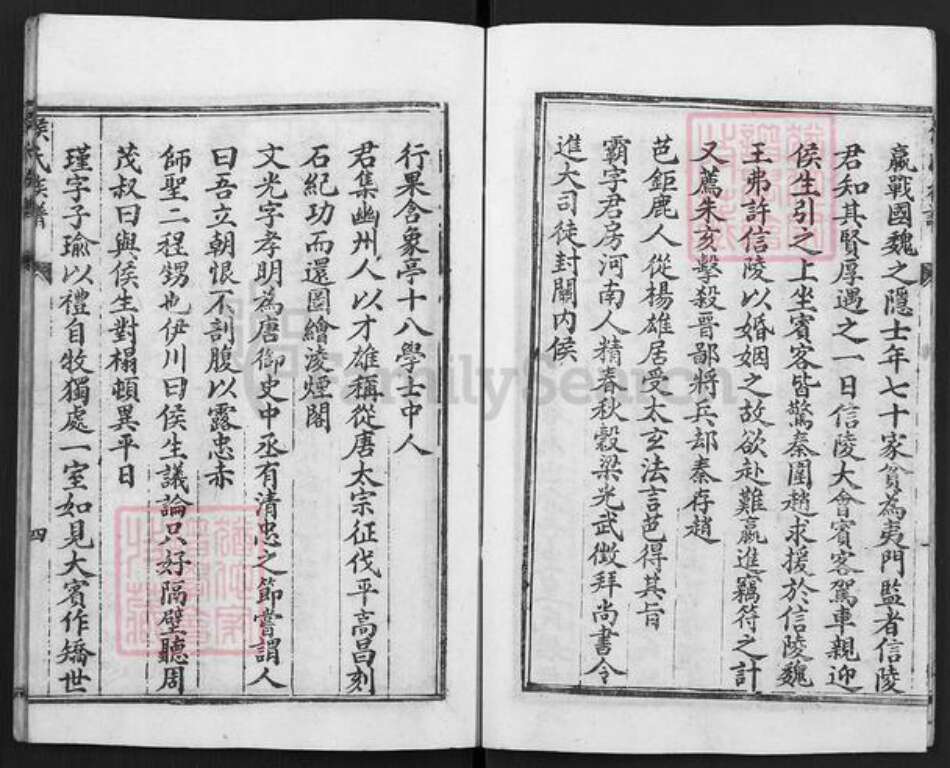 嬴戰國魏之隱士年七十家貧為夷門監者信陵
君知其賢厚遇之一日信陵大會賓客駕車親迎
侯生引之上坐賓客皆驚秦圍趙求援於信陵魏
王弗許信陵以婚姻之故欲赴難嬴進竊符之計
又薦朱亥擊殺晉鄙將兵却秦存趙
芭鉅鹿人從楊雄居受太玄法言芭得其旨
霸字君房河南人精春秋穀梁光武徵拜尚書令
進大司徒封關內侯
行果含象亭十八學士中人
君集豳州人以才雄稱從唐太宗征伐平高昌刻
石紀功而還圖繪凌煙閣
文光字孝明為唐御史中丞有清忠之節嘗謂人
曰吾立朝恨不剖腹以露忠赤
師聖二程甥也伊川曰侯生議論只好隔壁聽周
茂叔曰與侯生對榻頓異平日
瑾字子瑜以禮自牧獨處一室如見大賓作矯世
侯氏族譜
四
FamilySearch